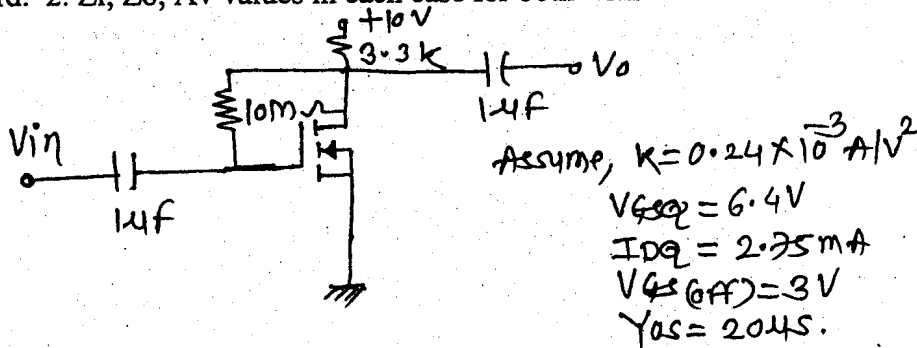 2. Zi, Zo, Av values in each case for
+10V
3.3k
Vo
10M
1μf
Vin
1μf
Assume, K=0.24×10⁻³ A/V²
VGSQ = 6.4V
IDQ = 2.75mA
VGS(OFF)=3V
Yos= 20μs.